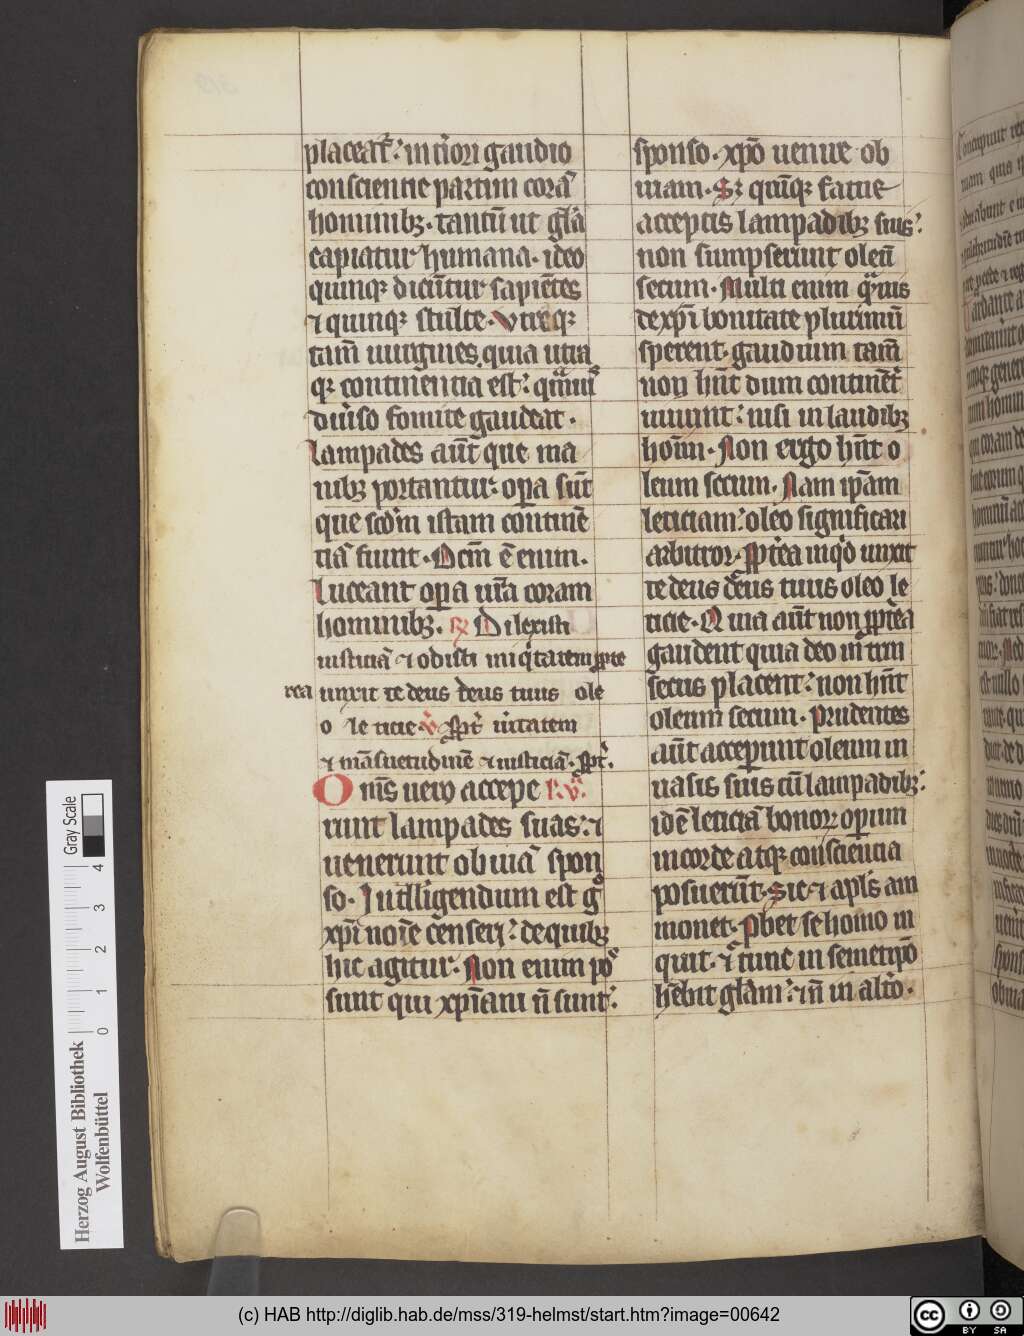 placeat᷑ : int̾iori gaudio
consciencie partim corā
hominibꝫ · tantū ut gl̄a
capiatur humana · ideo
quinqꝫ dicūtur sapiētes
⁊ quinqꝫ stulte · Utreqꝫ
tam̄ uirgines, quia utra
qꝫ continencia est : quāuis
diu̾so fomite gaudeat ·
Lampades aut̄ que ma
nibꝫ portantur · oꝑa sūt
que scd̄m istam continē
ciā fiunt · Dcm̄ ē enim ·
Luceant oꝑa ur̄a coram
hominibꝫ · ℟ Dilexisti
iusticiā ⁊ odisti iniq̇tatem ꝓpte
rea unxit te deus deus tuus ole
o leticie · ℣ ꝓpt̾ ueritatem
⁊ māsuetudinē ⁊ iusticiā · ꝓpt̾ ·
Om̄s uero accepe
runt lampades suas : ⁊
uenerunt obuiā spon
so · Intelligendum est ḡ
xp̄i noīe censeri : de quibꝫ
hic agitur · Non enim pō
sunt qui xp̄iani n̄ sunt :
sponso · xp̄o uenire ob
uiam · Sꝫ quīqꝫ fatue
acceptis lampadibꝫ suis :
non sumpserunt oleū
secum · Multi enim q̄uis
de xp̄i bonitate plurimū
sperent · gaudium tam̄
non hn̄t dum continēt̾
uiuunt : nisi in laudibꝫ
hoīm · Non ergo hn̄t o
leum secum · Nam ip̄am
leticiam : oleo significari
arbitror · Ꝓpt̾ea inq̇d unxit
te deus deus tuus oleo le
ticie · Quia aūt non ꝓpt̾ea
gaudent quia deo int̾in
secus placent : non hn̄t
oleum secum · Prudentes
aūt acceꝑunt oleum in
uasis suis cū lampadibꝫ :
id ē leticiā bonoꝝ operum
in corde atqꝫ consciencia
posuerūt · Sic ⁊ apl̄s am
monet · Probet se homo in
quit · ⁊ tunc in semetip̄o
hēbit gl̄am : ⁊ n̄ in alt̾o ·
Gray Scale
0 1 2 3 4
Herzog August Bibliothek
Wolfenbüttel
(c) HAB http://diglib.hab.de/mss/319-helmst/start.htm?image=00642
cc BY SA